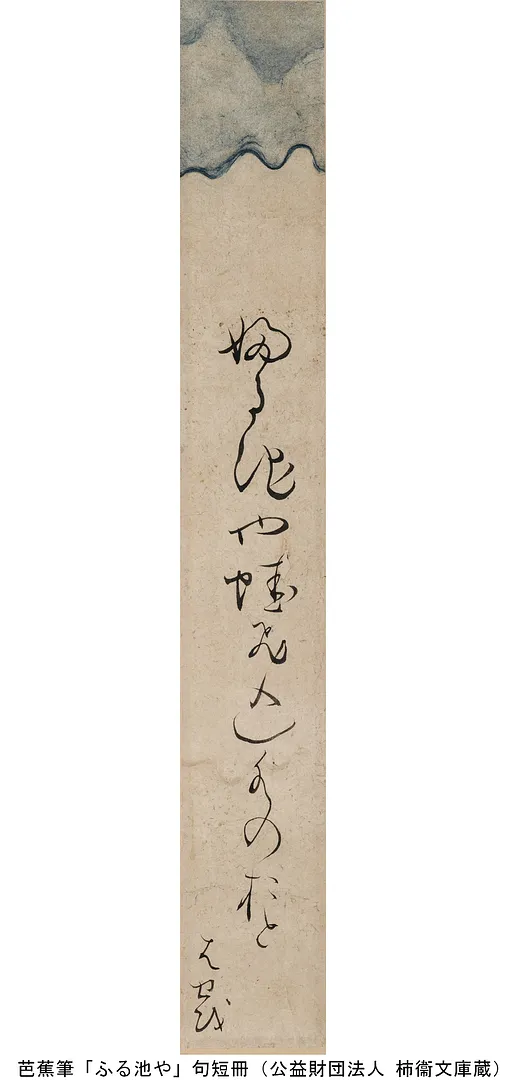 婦る池や蛙飛込水のおと
はせを
芭蕉筆「ふる池や」句短冊（公益財団法人 柿衞文庫蔵）